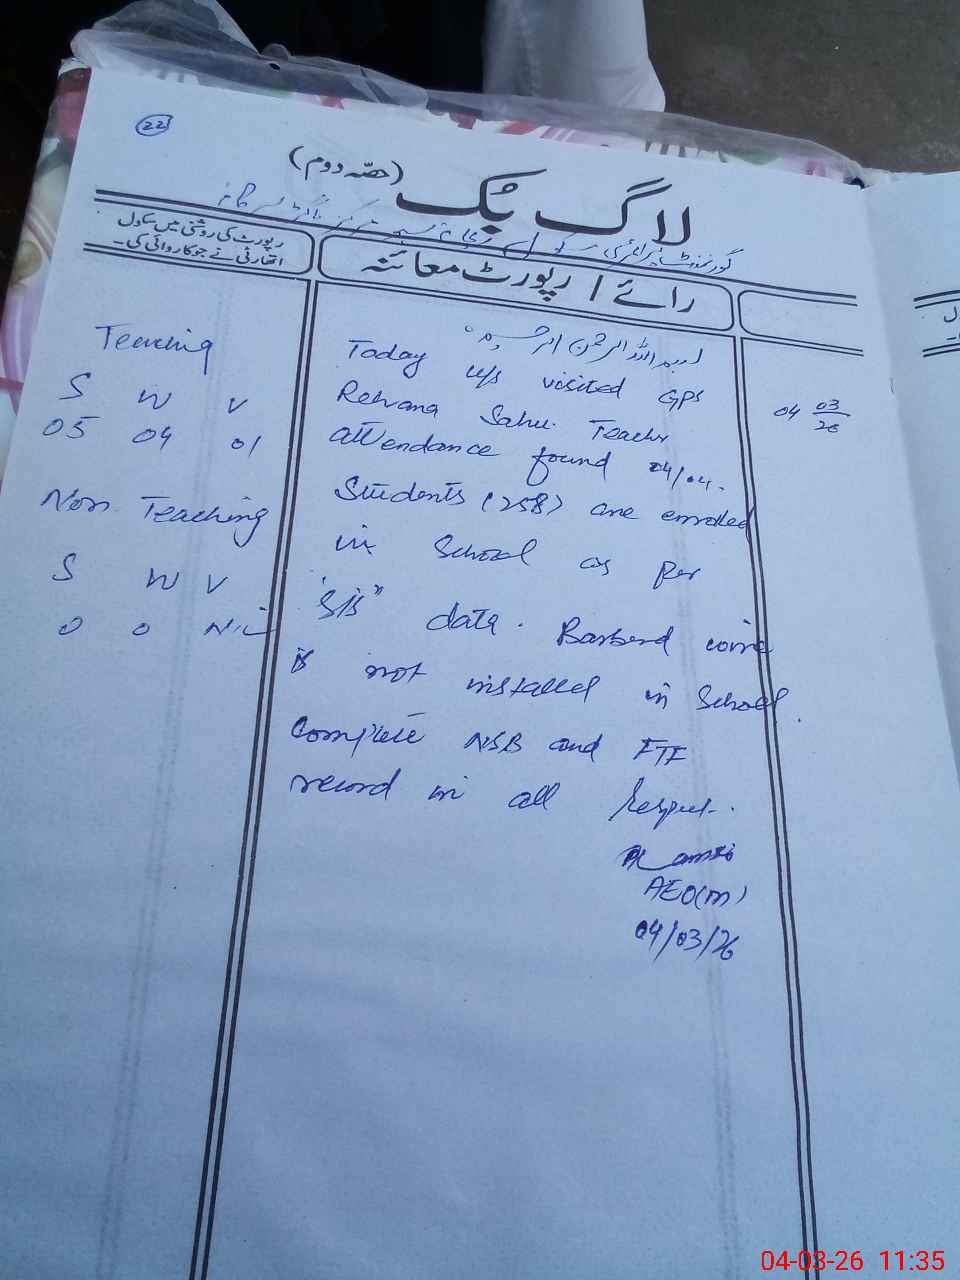 22
لاگ بُک (حصّہ دوم)
گورنمنٹ پرائمری
رپورٹ کی روشنی میں سکول
اتھارٹی نے جو کاروائی کی۔
رائے / رپورٹ معائنہ
بسم اللہ الرحمن الرحیم
04 03/26
Today u/s visited GPS
Rehana Sahu. Teachr
attendance found 04/04.
Students (258) are enrolled
in School as per
"SIS" data. Barbend wire
is not installed in School.
Complete NSB and FTF
record in all respect.
AEO(M)
04/03/26
Teaching
S W V
05 04 01
Non Teaching
S W V
0 0 Nil
04-03-26 11:35